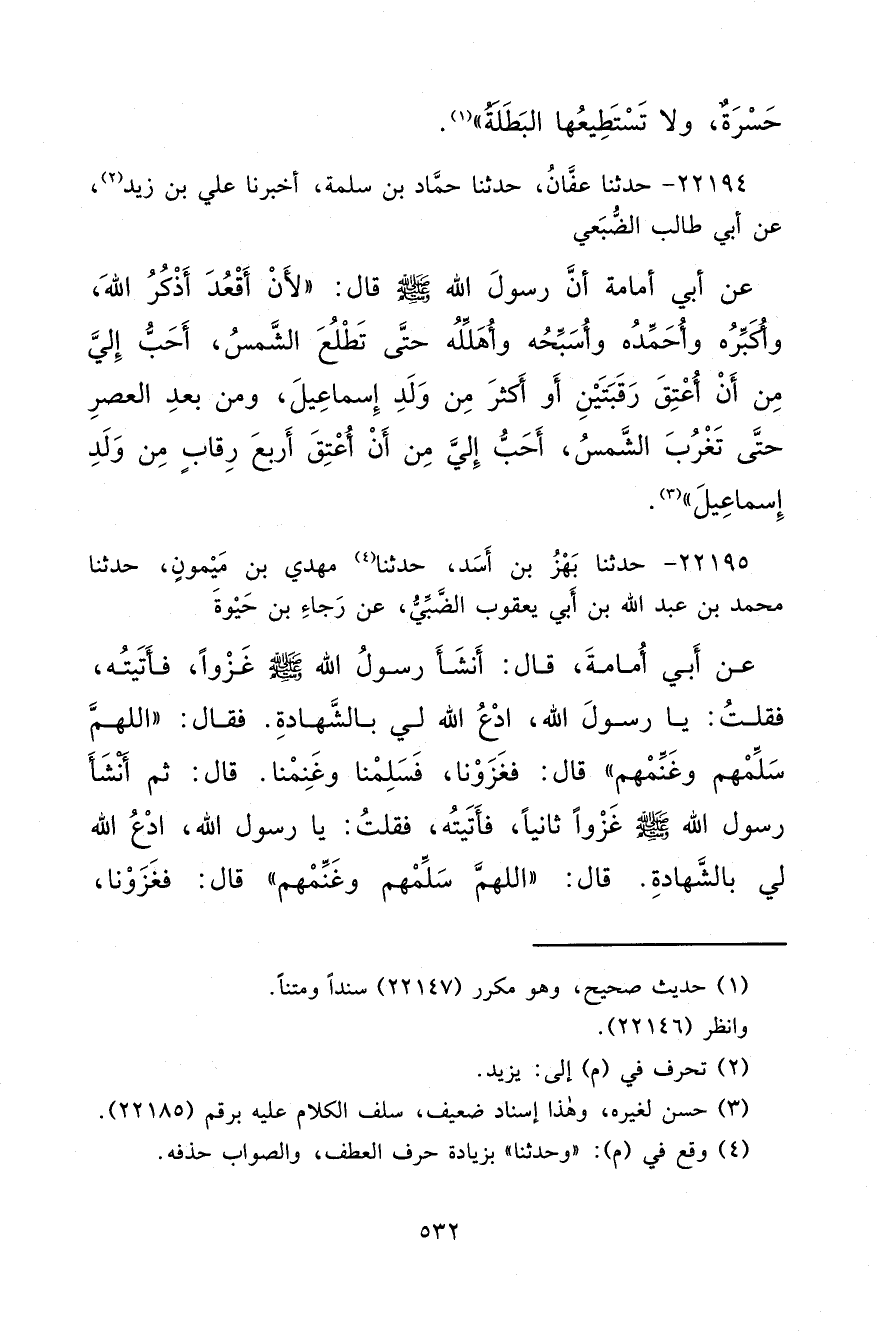 حَسْرَةٌ، ولا تَسْتَطِيعُها البَطَلَةُ»(١).
٢٢١٩٤- حدثنا عفَّانُ، حدثنا حمَّاد بن سلمة، أخبرنا علي بن زيد(٢)،
عن أبي طالب الضُّبَعي
عن أبي أمامة أنَّ رسولَ الله ﷺ قال: «لأَنْ أَقْعُدَ أَذْكُرُ اللهَ،
وأُكَبِّرُه وأُحَمِّدُه وأُسَبِّحُه وأُهَلِّلُه حتَّى تَطْلُعَ الشَّمسُ، أَحَبُّ إليَّ
مِن أَنْ أُعْتِقَ رَقَبَتَيْنِ أَو أَكثرَ مِن وَلَدِ إسماعِيلَ، ومن بعدِ العصرِ
حتَّى تَغْرُبَ الشَّمسُ، أَحَبُّ إليَّ مِن أَنْ أُعْتِقَ أَربعَ رِقابٍ مِن وَلَدِ
إسماعِيلَ»(٣).
٢٢١٩٥- حدثنا بَهْزُ بن أَسَد، حدثنا(٤) مهدي بن مَيْمونٍ، حدثنا
محمد بن عبد الله بن أبي يعقوب الضَّبِّيُّ، عن رَجاءِ بن حَيْوةَ
عـن أَبـي أُمـامـةَ، قـال: أَنشَـأَ رسـولُ الله ﷺ غَـزْواً، فـأَتَيتُـه،
فقلـتُ: يـا رسـولَ الله، ادْعُ الله لـي بـالشَّهـادةِ. فقـال: «اللهـمَّ
سَلِّمْهم وغَنِّمْهم» قال: فغَزَوْنا، فَسَلِمْنا وغَنِمْنا. قال: ثم أَنْشَأَ
رسول الله ﷺ غَزْواً ثانياً، فأَتَيتُه، فقلتُ: يا رسول الله، ادْعُ الله
لي بالشَّهادةِ. قال: «اللهمَّ سَلِّمْهم وغَنِّمْهم» قال: فغَزَوْنا،
(١) حديث صحيح، وهو مكرر (٢٢١٤٧) سنداً ومتناً.
وانظر (٢٢١٤٦).
(٢) تحرف في (م) إلى: يزيد.
(٣) حسن لغيره، وهٰذا إسناد ضعيف، سلف الكلام عليه برقم (٢٢١٨٥).
(٤) وقع في (م): «وحدثنا» بزيادة حرف العطف، والصواب حذفه.
٥٣٢